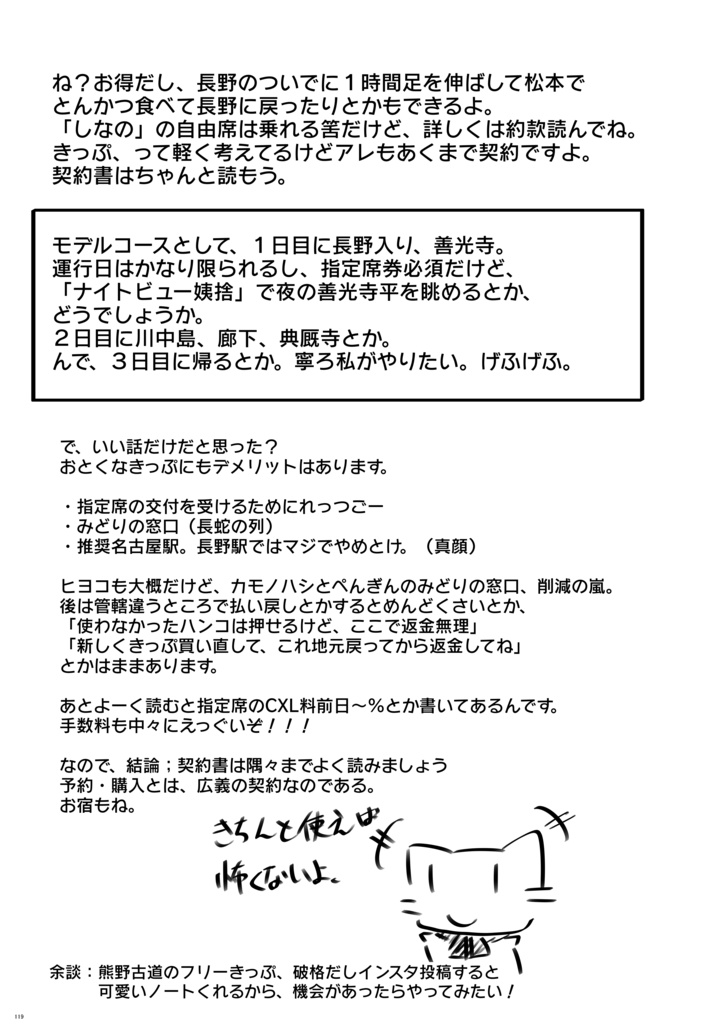 ね？お得だし、長野のついでに１時間足を伸ばして松本で
とんかつ食べて長野に戻ったりとかもできるよ。
「しなの」の自由席は乗れる筈だけど、詳しくは約款読んでね。
きっぷ、って軽く考えてるけどアレもあくまで契約ですよ。
契約書はちゃんと読もう。
モデルコースとして、１日目に長野入り、善光寺。
運行日はかなり限られるし、指定席券必須だけど、
「ナイトビュー姨捨」で夜の善光寺平を眺めるとか、
どうでしょうか。
２日目に川中島、廊下、典厩寺とか。
んで、３日目に帰るとか。寧ろ私がやりたい。げふげふ。
で、いい話だけだと思った？
おとくなきっぷにもデメリットはあります。
・指定席の交付を受けるためにれっつごー
・みどりの窓口（長蛇の列）
・推奨名古屋駅。長野駅ではマジでやめとけ。（真顔）
ヒヨコも大概だけど、カモノハシとぺんぎんのみどりの窓口、削減の嵐。
後は管轄違うところで払い戻しとかするとめんどくさいとか、
「使わなかったハンコは押せるけど、ここで返金無理」
「新しくきっぷ買い直して、これ地元戻ってから返金してね」
とかはままあります。
あとよーく読むと指定席のCXL料前日〜％とか書いてあるんです。
手数料も中々にえっぐいぞ！！！
なので、結論；契約書は隅々までよく読みましょう
予約・購入とは、広義の契約なのである。
お宿もね。
きちんと使えば
怖くないよ。
余談：熊野古道のフリーきっぷ、破格だしインスタ投稿すると
可愛いノートくれるから、機会があったらやってみたい！
119